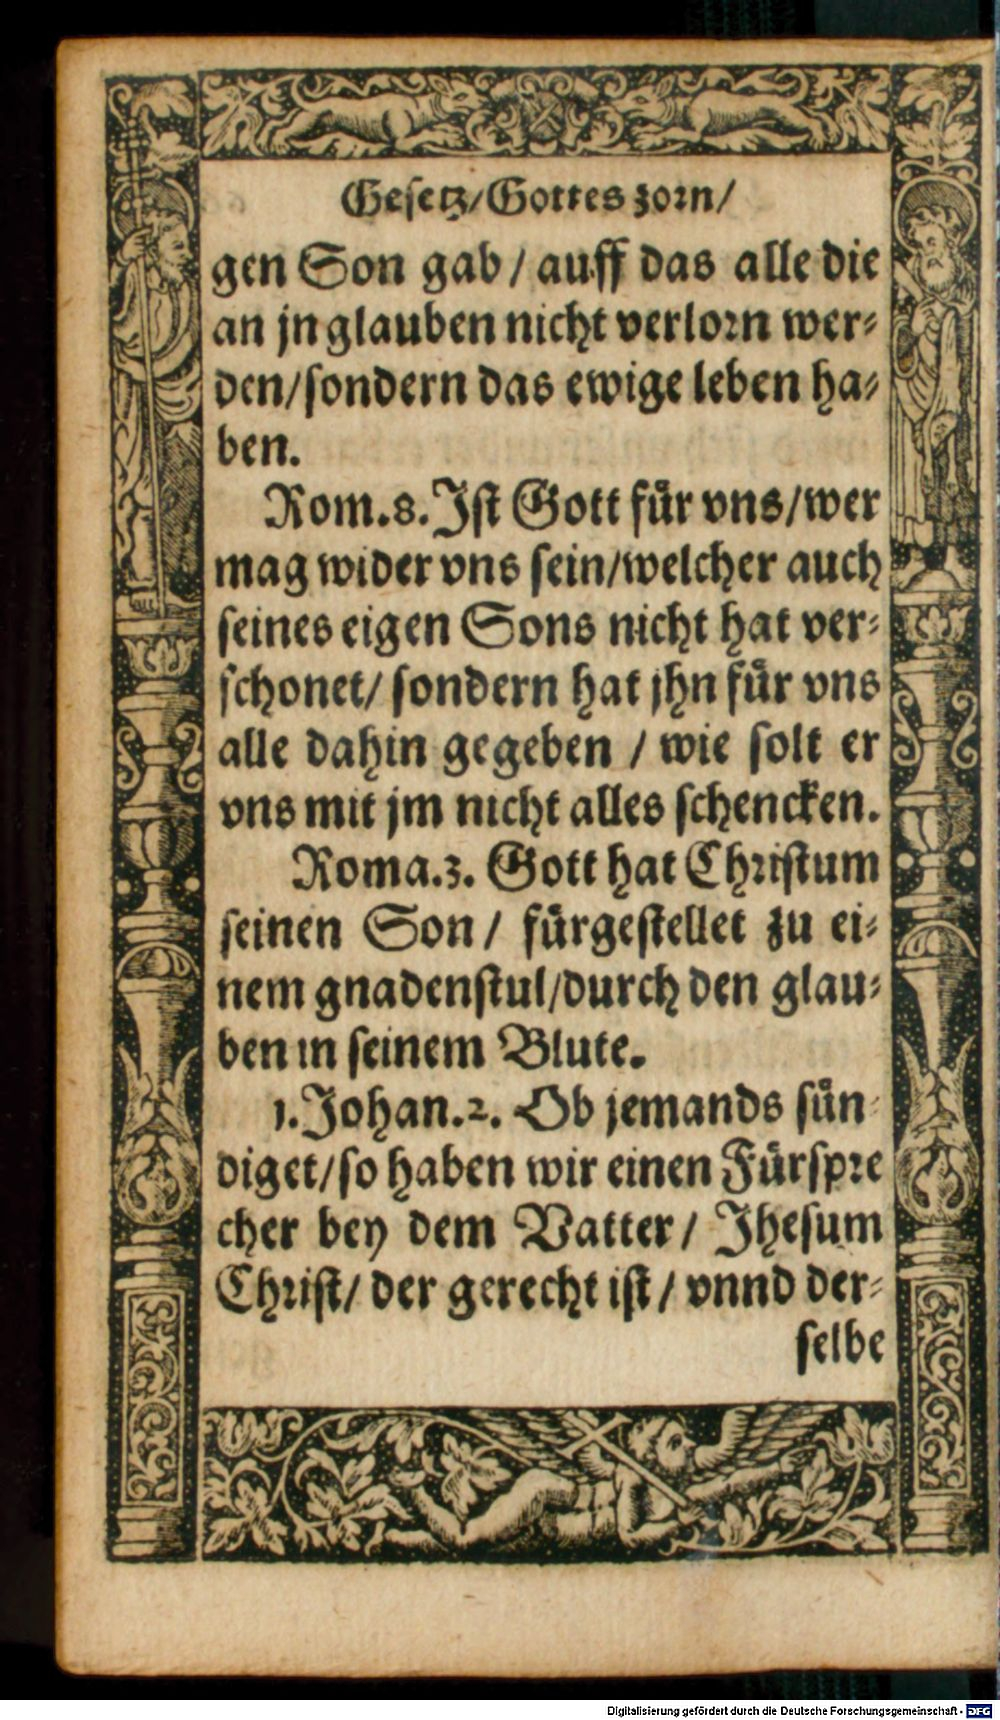 Gesetz/Gottes zorn/
gen Son gab / auff das alle die
an jn glauben nicht verlorn wer⸗
den/sondern das ewige leben ha⸗
ben.
Rom.8. Ist Gott für vns/wer
mag wider vns sein/welcher auch
seines eigen Sons nicht hat ver⸗
schonet/ sondern hat jhn für vns
alle dahin gegeben / wie solt er
vns mit jm nicht alles schencken.
Roma.3. Gott hat Christum
seinen Son / fürgestellet zu ei⸗
nem gnadenstul/durch den glau⸗
ben in seinem Blute.
1.Johan.2. Ob jemands sün⸗
diget/so haben wir einen Fürspre
cher bey dem Vatter/ Jhesum
Christ/ der gerecht ist / vnnd der⸗
selbe
Digitalisierung gefördert durch die Deutsche Forschungsgemeinschaft - DFG